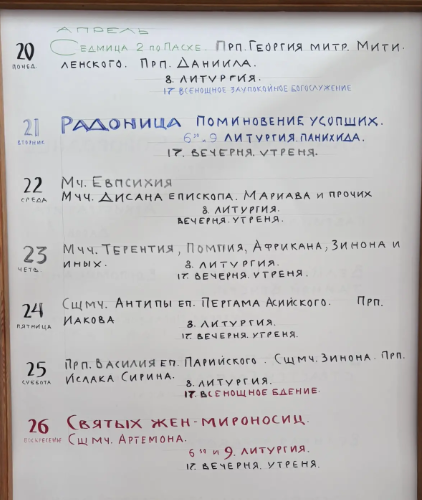 АПРЕЛЬ
20 СЕДМИЦА 2 ПО ПАСХЕ. ПРП. ГЕОРГИЯ МИТР. МИТИ-
ПОНЕД. ЛЕНСКОГО. ПРП. ДАНИИЛА.
8. ЛИТУРГИЯ.
17. ВСЕНОЩНОЕ ЗАУПОКОЙНОЕ БОГОСЛУЖЕНИЕ
21 РАДОНИЦА ПОМИНОВЕНИЕ УСОПШИХ.
ВТОРНИК 6³⁰-9 ЛИТУРГИЯ. ПАНИХИДА.
17. ВЕЧЕРНЯ. УТРЕНЯ.
22 МЧ. ЕВПСИХИЯ
СРЕДА МЧЧ. ДИСАНА ЕПИСКОПА. МАРИАВА И ПРОЧИХ
8. ЛИТУРГИЯ.
ВЕЧЕРНЯ. УТРЕНЯ.
23 МЧЧ. ТЕРЕНТИЯ, ПОМПИЯ, АФРИКАНА, ЗИНОНА И
ЧЕТВ. ИНЫХ. 8. ЛИТУРГИЯ.
17. ВЕЧЕРНЯ. УТРЕНЯ.
24 СЩМЧ. АНТИПЫ ЕП. ПЕРГАМА АСИЙСКОГО. ПРП.
ПЯТНИЦА ИАКОВА 8. ЛИТУРГИЯ.
17. ВЕЧЕРНЯ. УТРЕНЯ.
25 ПРП. ВАСИЛИЯ ЕП. ПАРИЙСКОГО. СЩМЧ. ЗИНОНА. ПРП.
СУББОТА ИСААКА СИРИНА. 8. ЛИТУРГИЯ.
17. ВСЕНОЩНОЕ БДЕНИЕ.
26 СВЯТЫХ ЖЕН-МИРОНОСИЦ.
СЩМЧ. АРТЕМОНА.
6³⁰ И 9. ЛИТУРГИЯ.
17. ВЕЧЕРНЯ. УТРЕНЯ.